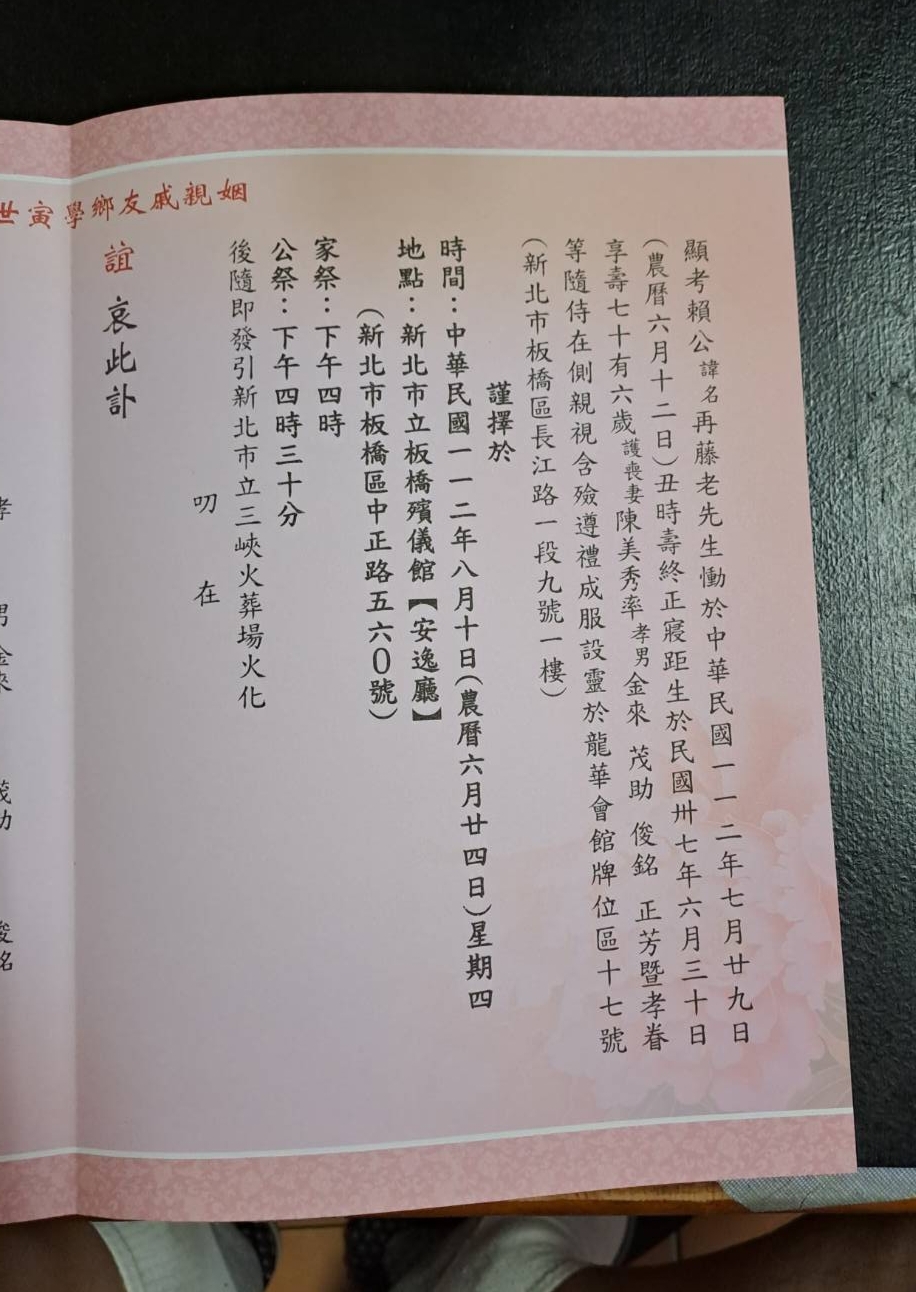 顯考賴公諱名再藤老先生慟於中華民國一一二年七月廿九日
（農曆六月十二日）丑時壽終正寢距生於民國卅七年六月三十日
享壽七十有六歲護喪妻陳美秀率孝男金來 茂助 俊銘 正芳暨孝眷
等隨侍在側親視含殮遵禮成服設靈於龍華會館牌位區十七號
（新北市板橋區長江路一段九號一樓）
謹擇於
時間：中華民國一一二年八月十日（農曆六月廿四日）星期四
地點：新北市立板橋殯儀館【安逸廳】
（新北市板橋區中正路五六０號）
家祭：下午四時
公祭：下午四時三十分
後隨即發引新北市立三峽火葬場火化
叨 在
姻親戚友鄉學寅世
誼 哀此訃
男金來 茂助 俊銘